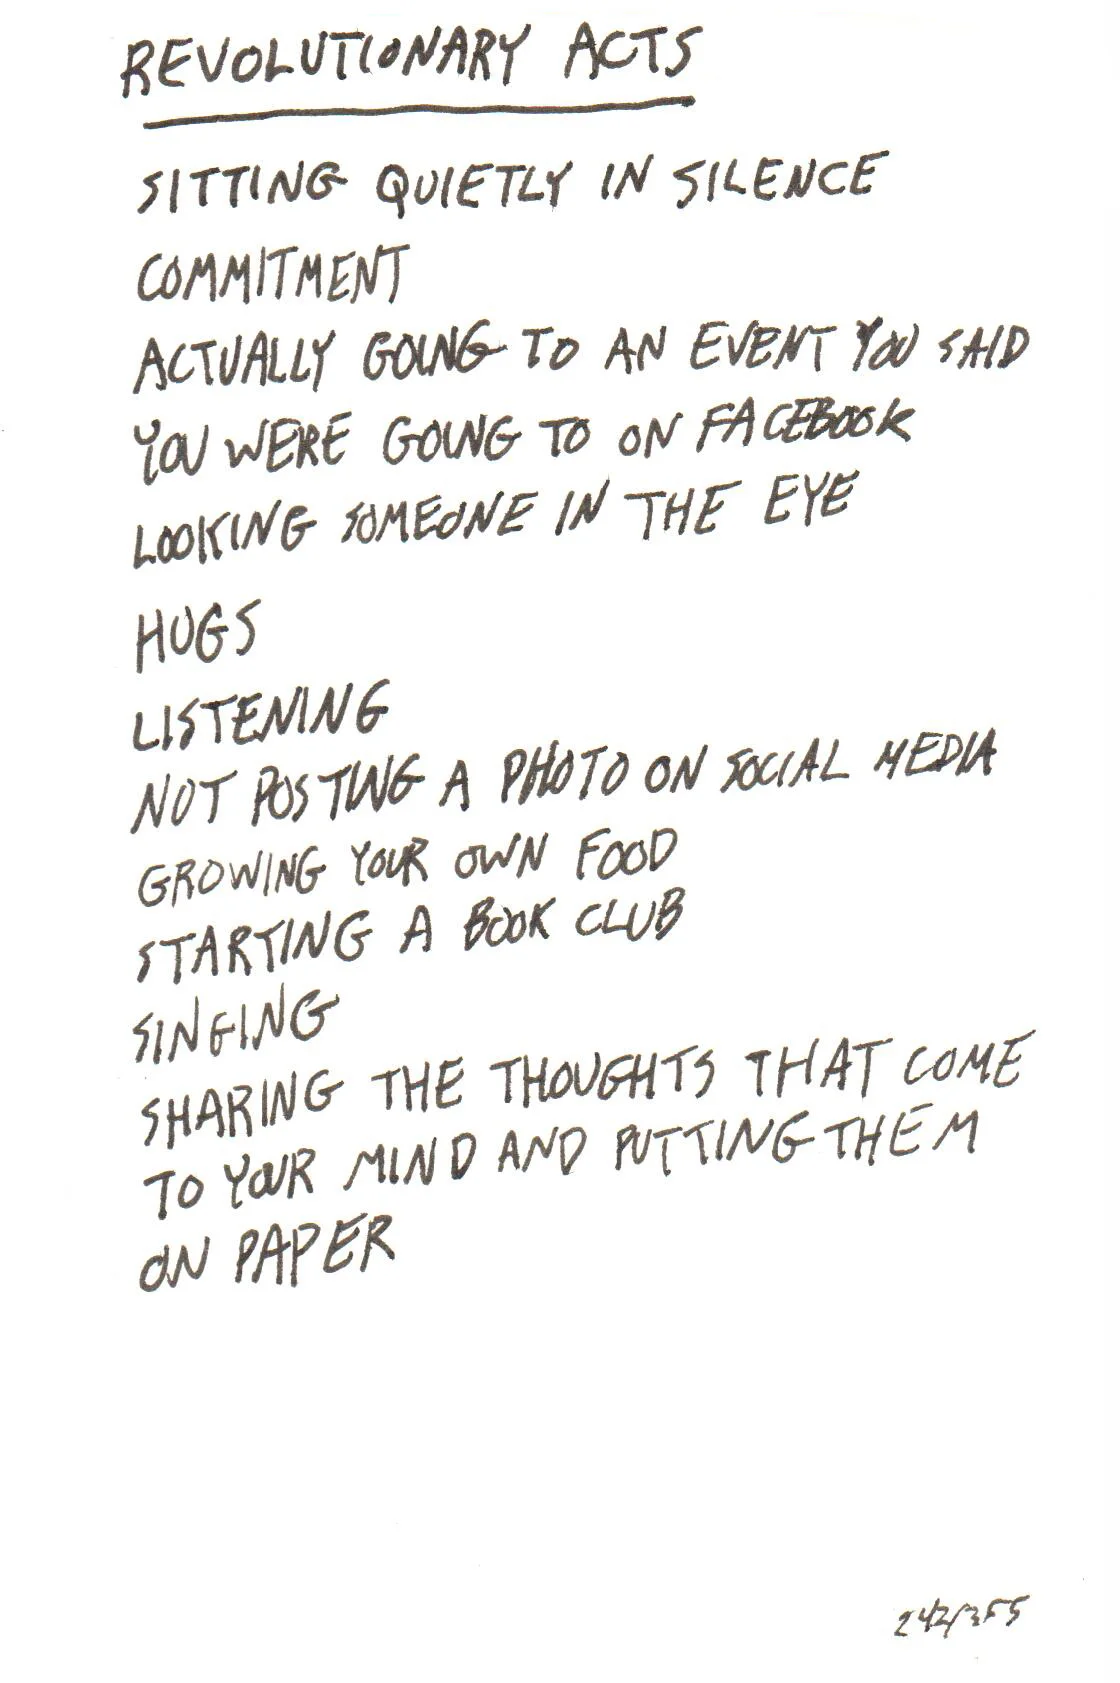 REVOLUTIONARY ACTS
SITTING QUIETLY IN SILENCE
COMMITMENT
ACTUALLY GOING TO AN EVENT YOU SAID
YOU WERE GOING TO ON FACEBOOK
LOOKING SOMEONE IN THE EYE
HUGS
LISTENING
NOT POSTING A PHOTO ON SOCIAL MEDIA
GROWING YOUR OWN FOOD
STARTING A BOOK CLUB
SINGING
SHARING THE THOUGHTS THAT COME
TO YOUR MIND AND PUTTING THEM
ON PAPER
242/365